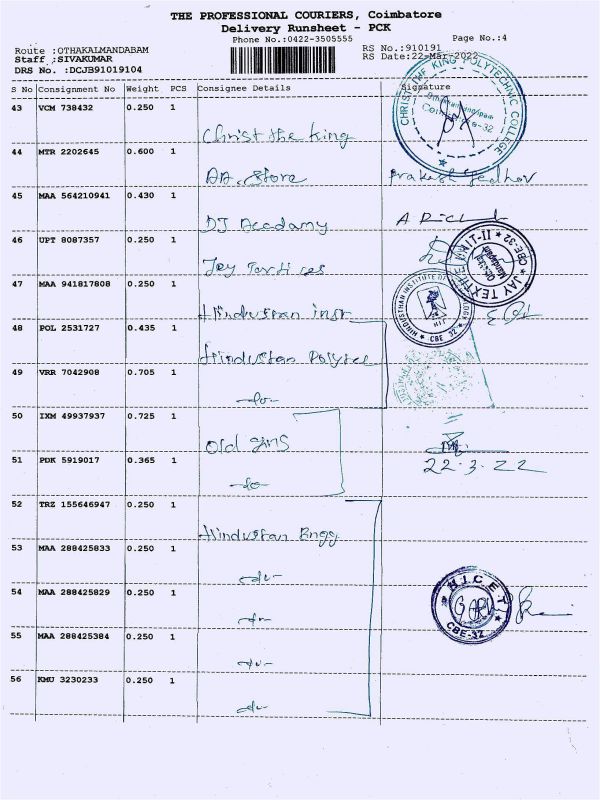 THE PROFESSIONAL COURIERS, Coimbatore
Delivery Runsheet - PCK
Phone No.:0422-3505555 Page No.:4
Route :OTHAKALMANDABAM RS No.:910191
Staff :SIVAKUMAR RS Date:22-Mar-2022
DRS No. :DCJB91019104
S No Consignment No Weight PCS Consignee Details Signature
43 VCM 738432 0.250 1
Christ the King
CHRIST THE KING POLYTECHNIC COLLEGE
44 MTR 2202645 0.600 1
AA. Store
45 MAA 564210941 0.430 1
DJ Acadamy
46 UPT 8087357 0.250 1
Jay
JAY TEXTILE UNIT-II CBE-32
47 MAA 941817808 0.250 1
Hindustan Inst
HINDUSTHAN INSTITUTE OF
HIT
CBE 32
48 POL 2531727 0.435 1
Hindustan Polytec
49 VRR 7042908 0.705 1
-do-
50 IXM 49937937 0.725 1
Old
51 PDK 5919017 0.365 1
-do-
22.3.22
52 TRZ 155646947 0.250 1
Hindustan Engg
53 MAA 288425833 0.250 1
-do-
54 MAA 288425829 0.250 1
-do-
H.I.C.E.T
CBE-32
55 MAA 288425384 0.250 1
-do-
56 KMU 3230233 0.250 1
-do-